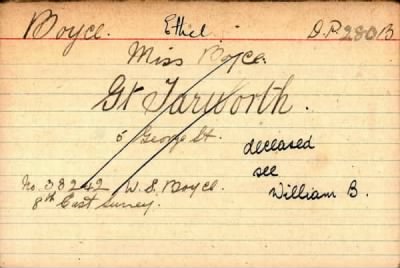 Boyce. Ethel D.P. 280B
Miss Boyce.
Gt Tarworth.
5 George St.
deceased
see
William B.
No. 38242 W. S. Boyce.
8th East Surrey.